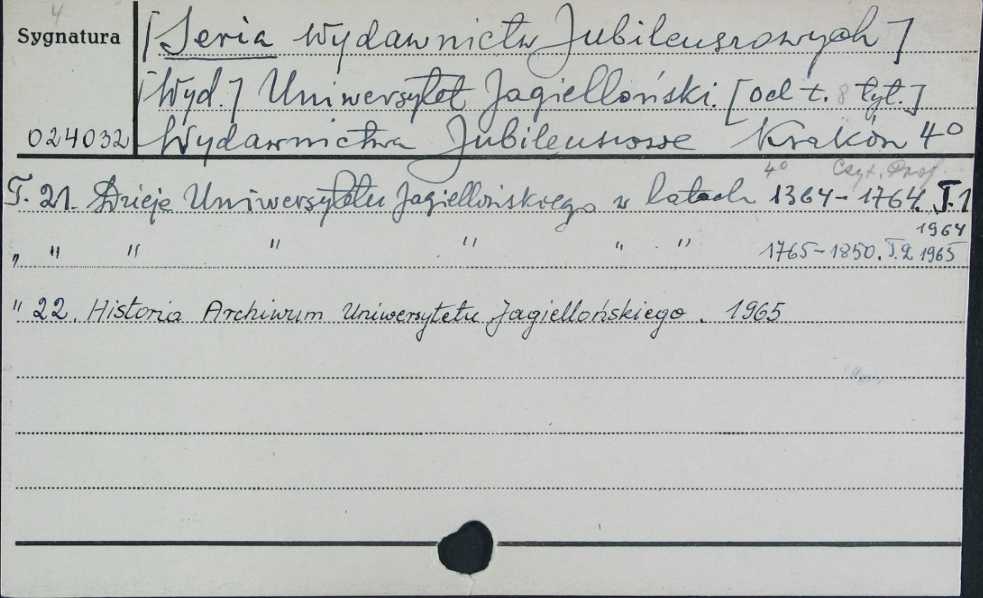 4
Sygnatura [Seria Wydawnictw Jubileuszowych]
[Wyd.] Uniwersytet Jagielloński. [od t. 8 tyt.]
024032 Wydawnictwa Jubileuszowe Kraków 4°
4° Czyt. Prof.
T. 21. Dzieje Uniwersytetu Jagiellońskiego w latach 1364-1764. T. 1
1964
„ " " " " " " 1765-1850. T. 2 1965
" 22. Historia Archiwum Uniwersytetu Jagiellońskiego. 1965